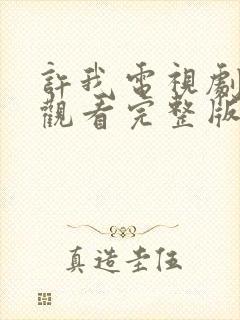 許我電視劇
觀看完整版
真造圭伍